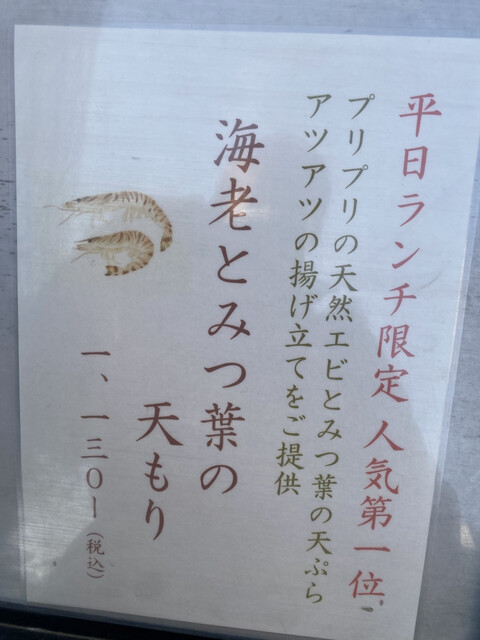 平日ランチ限定 人気第一位
プリプリの天然エビとみつ葉の天ぷら
アツアツの揚げ立てをご提供
海老とみつ葉の
天もり
一、一三〇ー（税込）